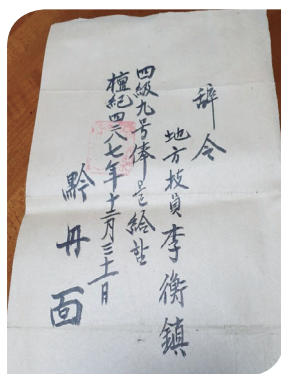 辞令
地方技員 李衡鎮
四級九号俸을 給함
檀紀四二八七年十二月三十一日
黔丹面